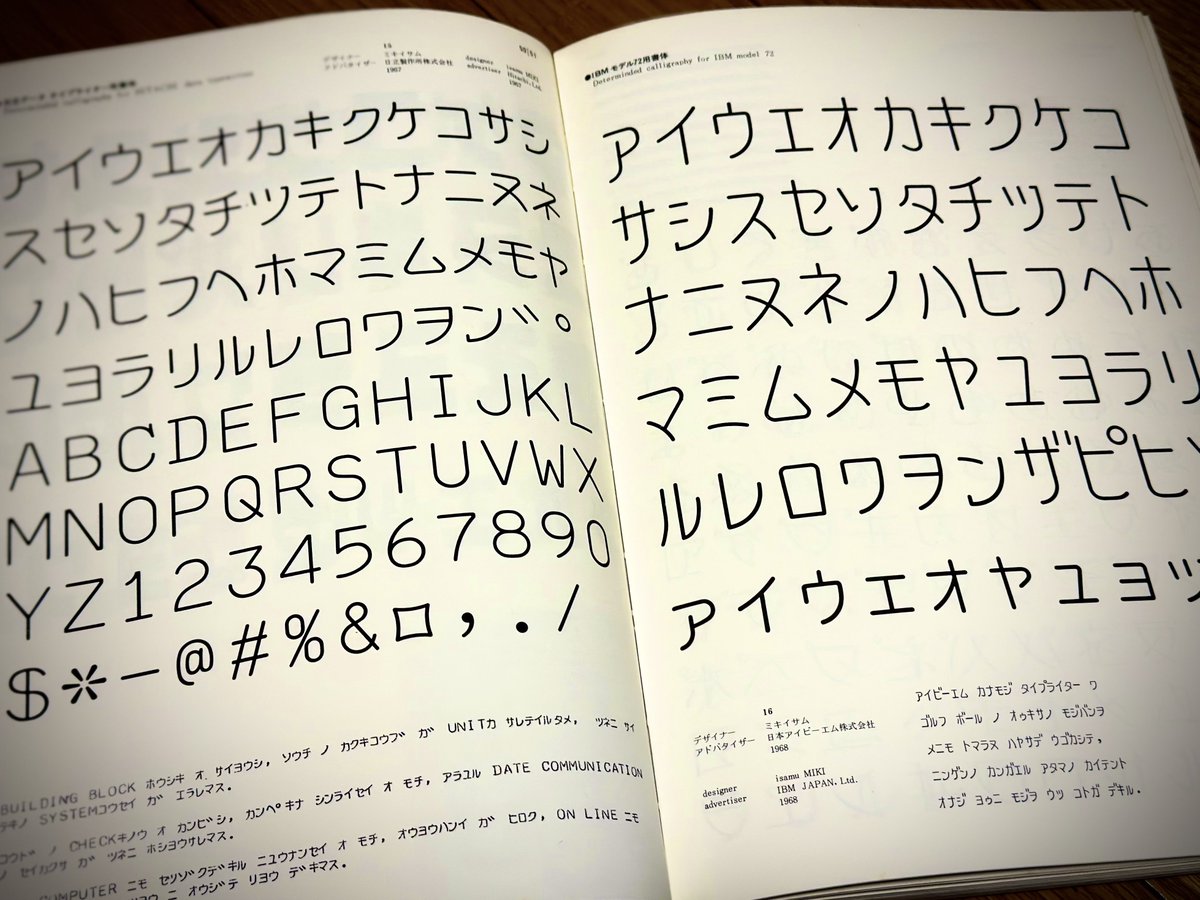 50 51
15
デザイナー ミキイサム
アドバタイザー 日立製作所株式会社
1967
designer isamu MIKI
advertiser Hitachi, Ltd.
1967
アイウエオカキクケコサシ
スセソタチツテトナニヌネ
ノハヒフヘホマミムメモヤ
ユヨラリルレロワヲン゛゜
ABCDEFGHIJKL
MNOPQRSTUVWX
YZ1234567890
$*-@#%&¤,./
BUILDING BLOCK ホウシキ オ サイヨウシ, ソウチ ノ カクキコウブ ガ UNITカ サレテイルタメ, ツネニ サイ
テキノ SYSTEMコウセイ ガ エラレマス.
コウド ノ CHECKキノウ オ カンビシ, カンペキナ シンライセイ オ モチ, アラユル DATE COMMUNICATION
ノ セイカクサ ガ ツネニ ホショウサレマス.
COMPUTER ニモ セツゾクデキル ニユウナンセイ オ モチ, オウヨウハンイ ガ ヒロク, ON LINE ニモ
ニ オウジテ リヨウ デキマス.
●IBM モデル72用書体
Determinded calligraphy for IBM model 72
アイウエオカキクケコ
サシスセソタチツテト
ナニヌネノハヒフヘホ
マミムメモヤユヨラリ
ルレロワヲンザピヒ
ァィゥェォャュョッ
16
デザイナー ミキイサム
アドバタイザー 日本アイビーエム株式会社
1968
designer isamu MIKI
advertiser IBM JAPAN, Ltd.
1968
アイビーエム カナモジ タイプライター ワ
ゴルフ ボール ノ オゥキサノ モジバンヲ
メニモ トマラヌ ハヤサデ ウゴカシテ,
ニンゲンノ カンガエル アタマノ カイテント
オナジ ヨゥニ モジヲ ウツ コトガ デキル.